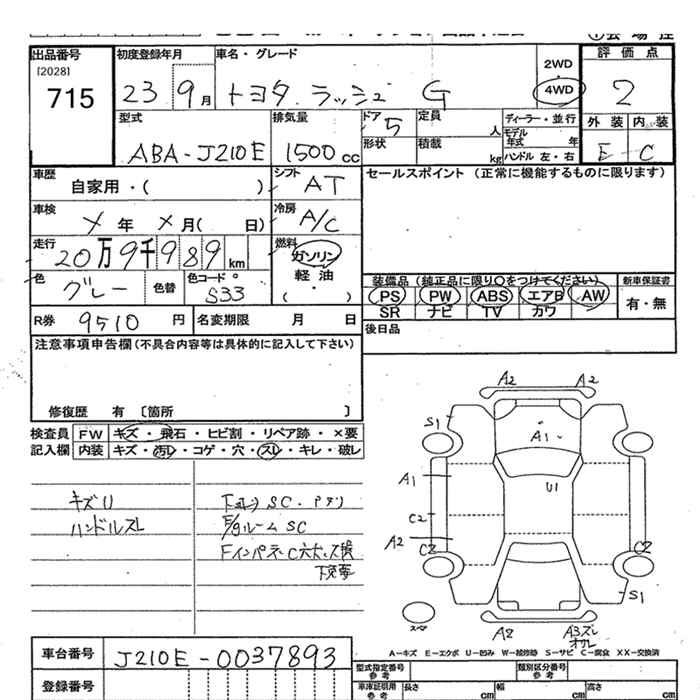 出品番号
[2028]
715
初度登録年月
23 9月
車名・グレード
トヨタ ラッシュ G
2WD
4WD
評価点
2
型式
ABA-J210E
排気量
1500cc
ドア
5
定員
人
ディーラー・並行
モデル
年式 年
形状
積載
kg
ハンドル 左・右
外装 内装
E-C
車歴
自家用・( )
シフト
AT
セールスポイント (正常に機能するものに限ります)
車検
メ年 メ月( 日)
冷房
A/C
走行
20万9千989km
燃料
ガソリン
軽油
( ・ )
色
グレー
色替
色コード
S33
装備品 (純正品に限り○をつけてください)
PS PW ABS エアB AW
SR ナビ TV カワ
新車保証書
有・無
R券 9510円
名変期限 月 日
後日品
注意事項申告欄(不具合内容等は具体的に記入して下さい)
修復歴 有 [箇所 ]
検査員
記入欄
FW キズ・飛石・ヒビ割・リペア跡・×要
内装 キズ・汚レ・コゲ・穴・スレ・キレ・破レ
キズU
ハンドルスレ
下回りSC・
E/gルームSC
A2 A2
S1
A1
A1
U1
C2
A2
C2 C2
S1
スペア
A2
A3スレ
A-キズ E-エクボ U-凹み W-補修跡 S-サビ C-腐食 XX-交換済
車台番号
J210E-0037893
登録番号
型式指定番号
参考
類別区分番号
参考
車庫証明用
参考
長さ cm
幅 cm
高さ cm